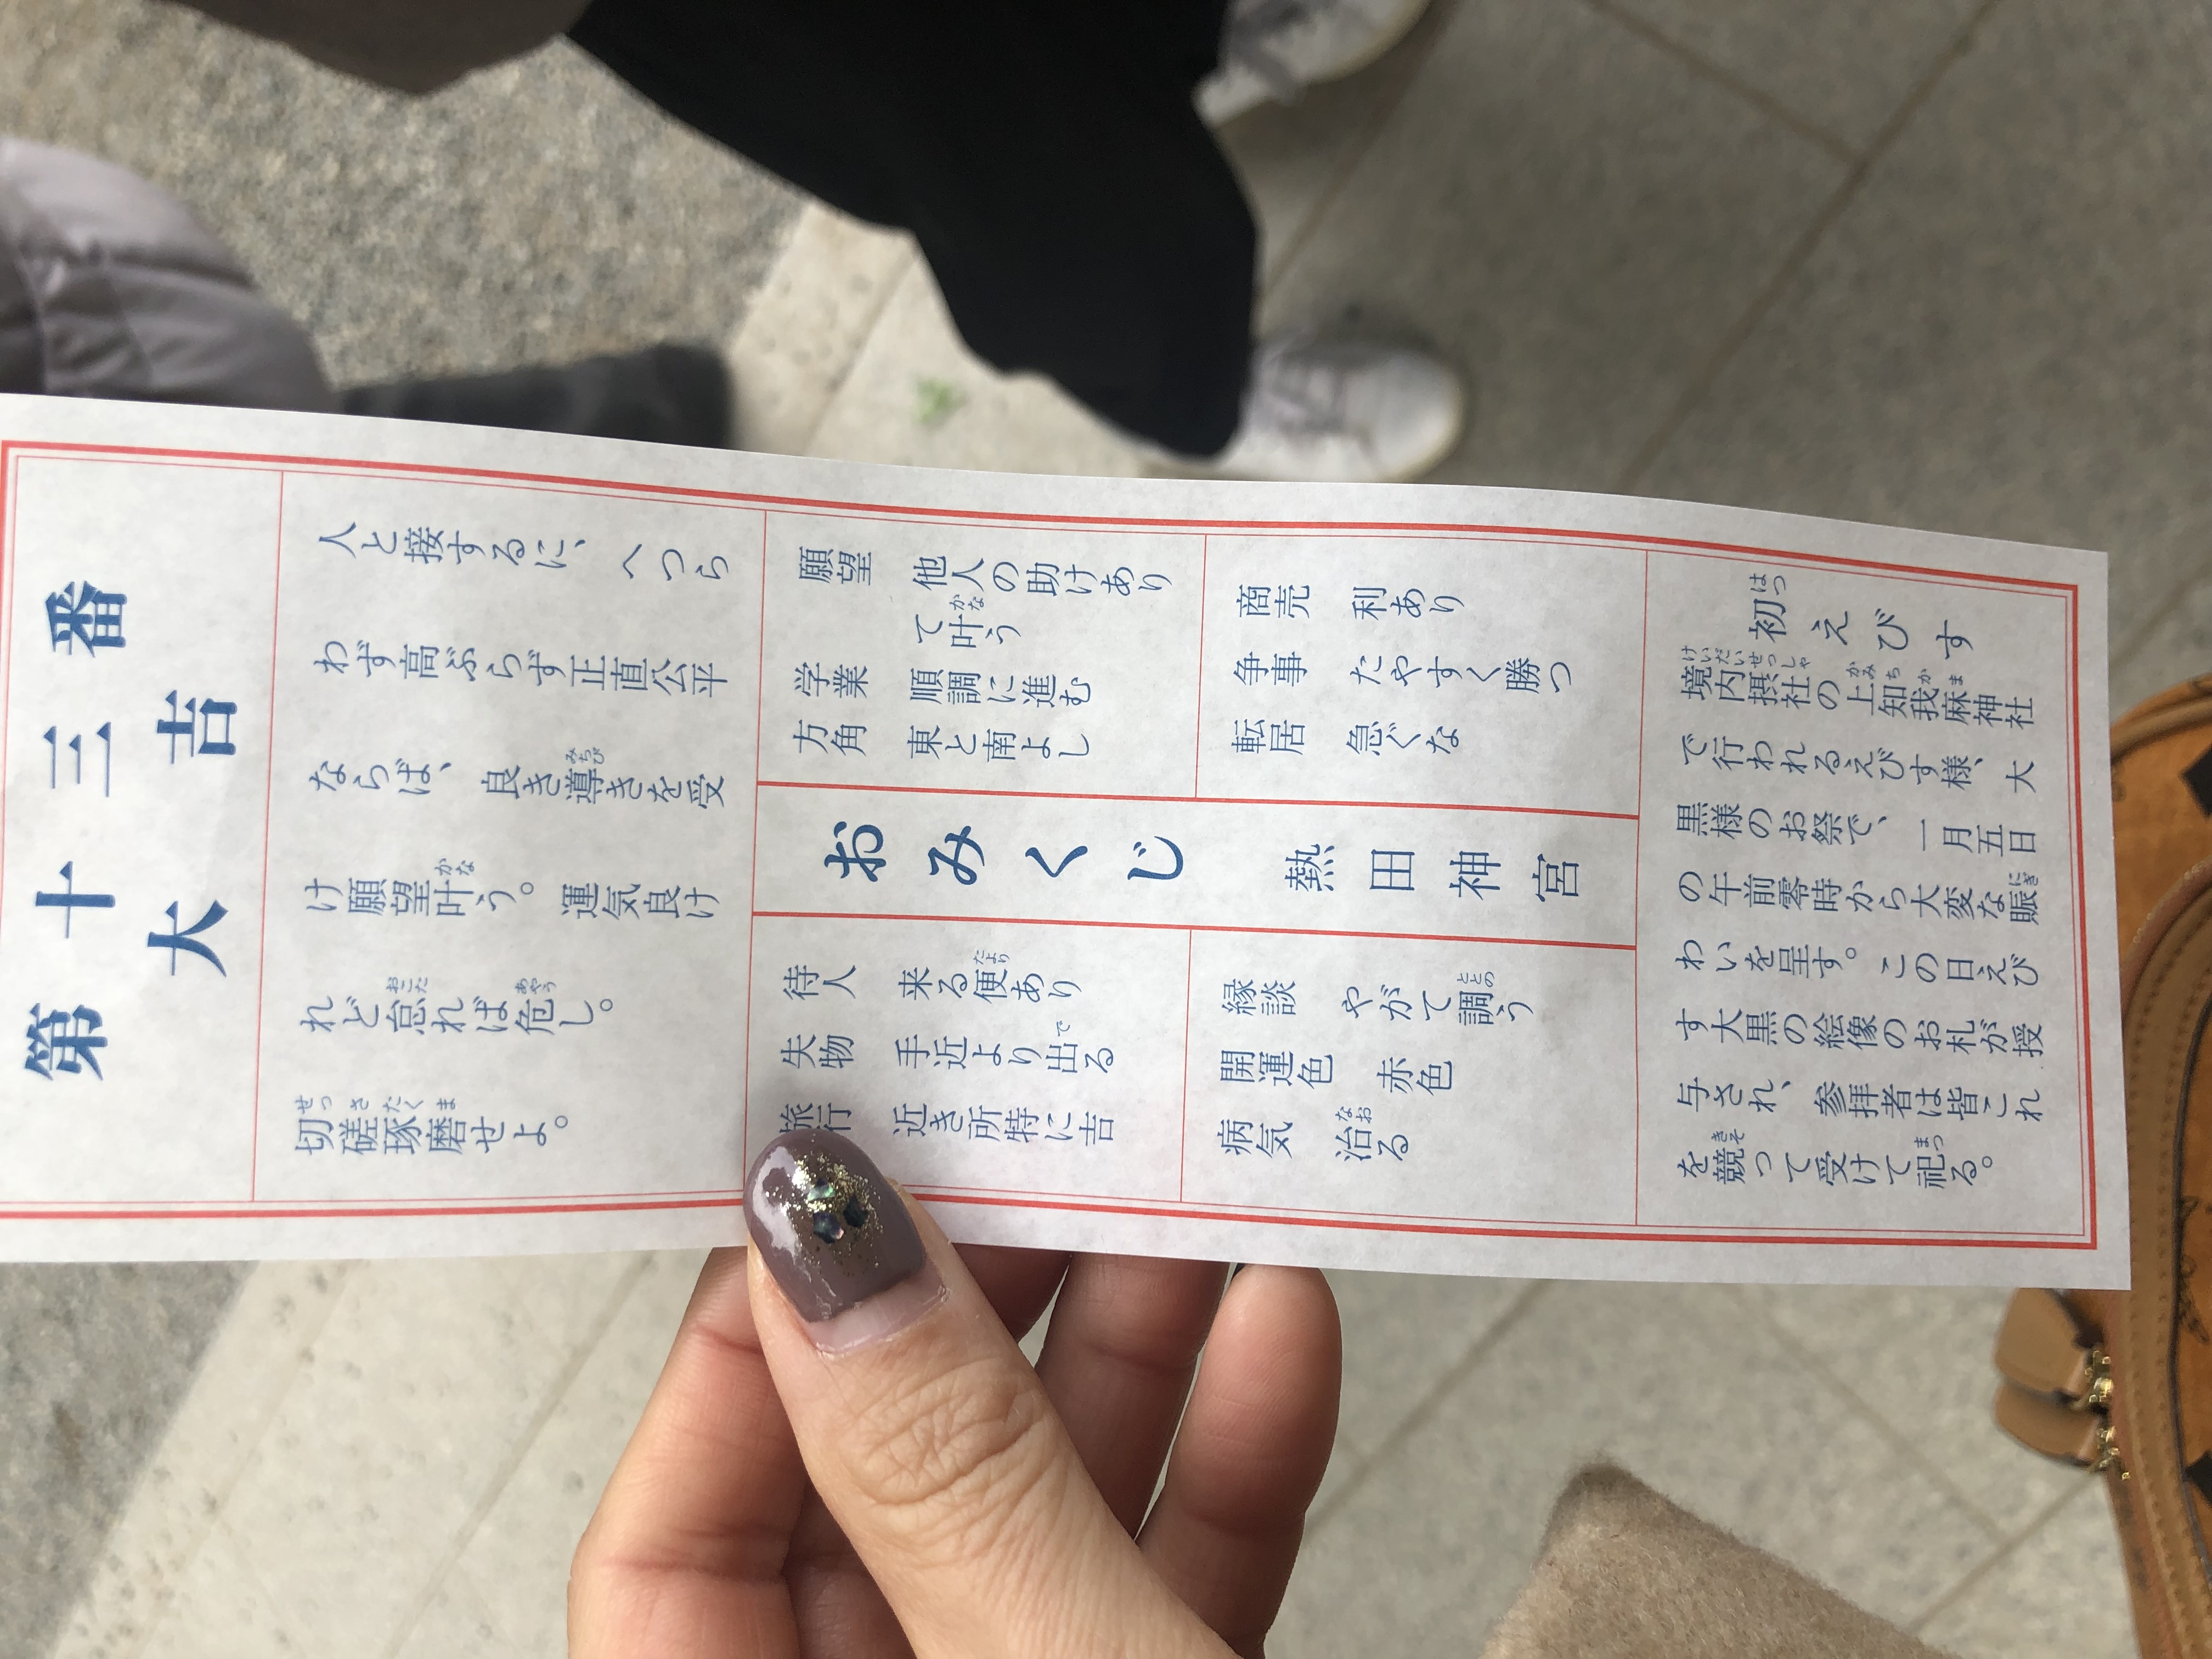 第十三番
大吉
人と接するに、へつら
わず高ぶらず正直公平
ならば、良き導きを受
け願望叶う。運気良け
れど怠れば危し。
切磋琢磨せよ。
願望 他人の助けあり
て叶う
学業 順調に進む
方角 東と南よし
商売 利あり
争事 たやすく勝つ
転居 急ぐな
おみくじ 熱田神宮
待人 来る便あり
失物 手近より出る
旅行 近き所特に吉
縁談 やがて調う
開運色 赤色
病気 治る
初えびす
境内摂社の上知我麻神社
で行われるえびす様、大
黒様のお祭で、一月五日
の午前零時から大変な賑
わいを呈す。この日えび
す大黒の絵像のお札が授
与され、参拝者は皆これ
を競って受けて祀る。